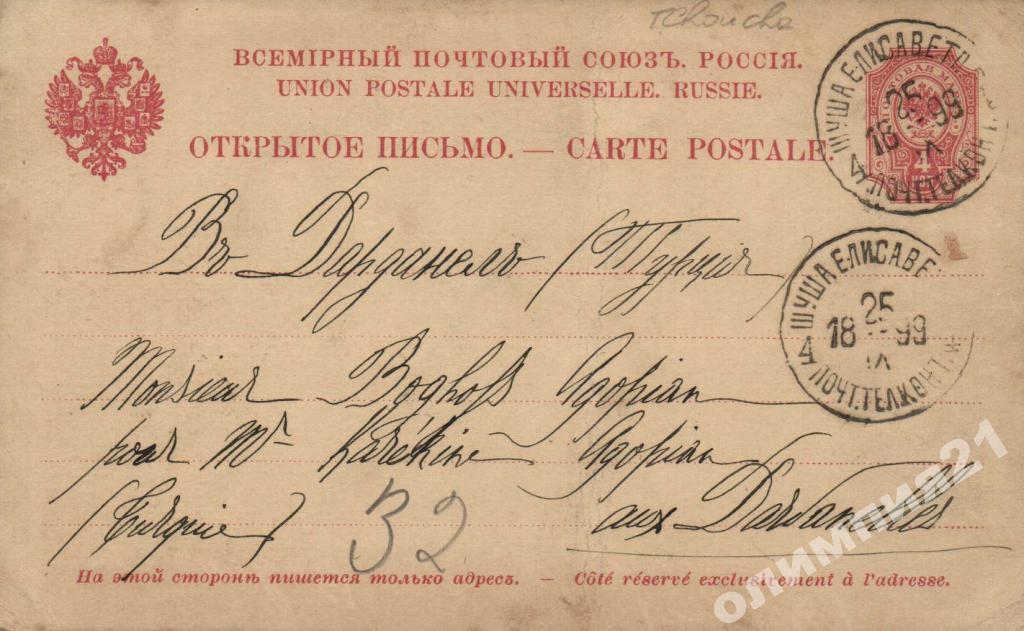 Tchoucha
ВСЕМІРНЫЙ ПОЧТОВЫЙ СОЮЗЪ. РОССІЯ.
UNION POSTALE UNIVERSELLE. RUSSIE.
ОТКРЫТОЕ ПИСЬМО. — CARTE POSTALE.
ШУША ЕЛИСАВЕТП.
25
18 99
IX
4 ПОЧТ.ТЕЛ.КОНТ.
4
Въ Дарданелъ (Турція)
ШУША ЕЛИСАВЕ
25
18 99
IX
4 ПОЧТ.ТЕЛ.КОНТ. *
Monsieur Boghoss Agopian
pour Mr Karékine Agopian
(Turquie) aux Dardanelles
32
На этой сторонѣ пишется только адресъ. — Côté réservé exclusivement à l'adresse.
олимпия21